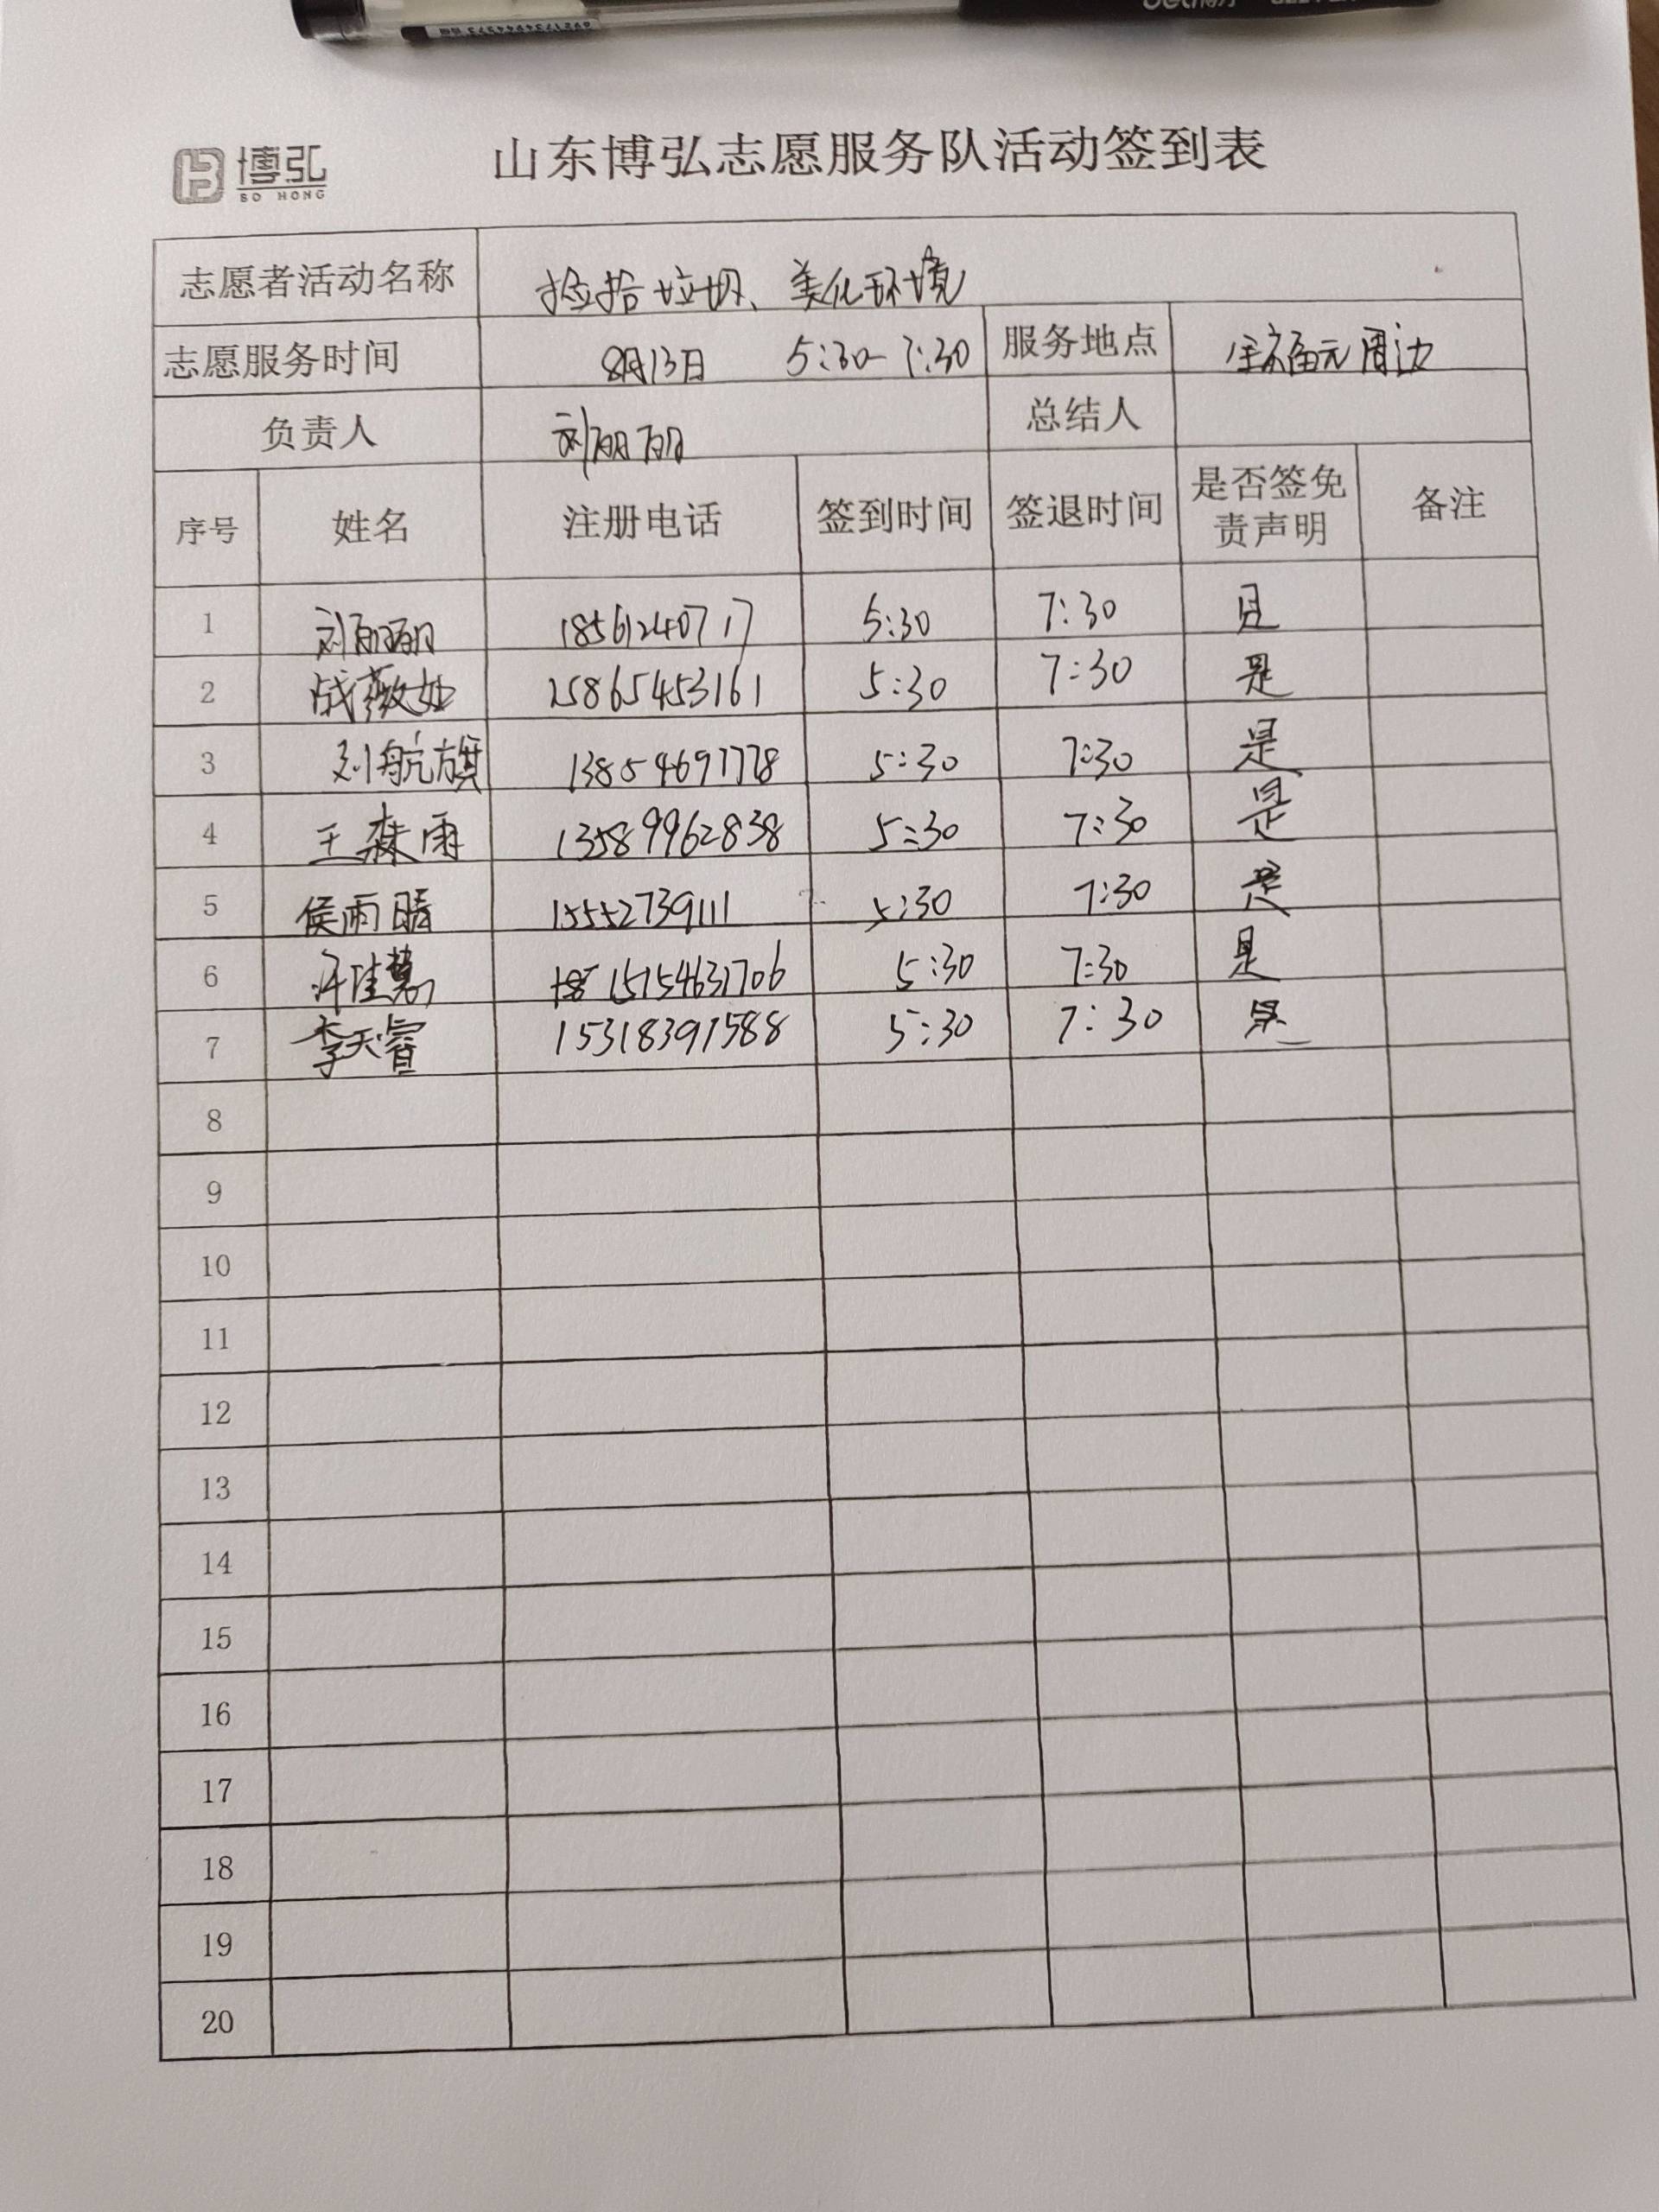 博弘
BO HONG
山东博弘志愿服务队活动签到表
志愿者活动名称 捡拾垃圾、美化环境
志愿服务时间 8月13日 5:30-7:30 服务地点 全福元周边
负责人 刘丽丽 总结人
序号 姓名 注册电话 签到时间 签退时间 是否签免责声明 备注
1 刘丽丽 18561240717 5:30 7:30 是
2 战薇如 15865453161 5:30 7:30 是
3 刘航旗 13854697778 5:30 7:30 是
4 王森雨 13589962838 5:30 7:30 是
5 侯雨晴 15552739111 5:30 7:30 是
6 许佳慧 15154631706 5:30 7:30 是
7 李天睿 15318391588 5:30 7:30 是
8
9
10
11
12
13
14
15
16
17
18
19
20